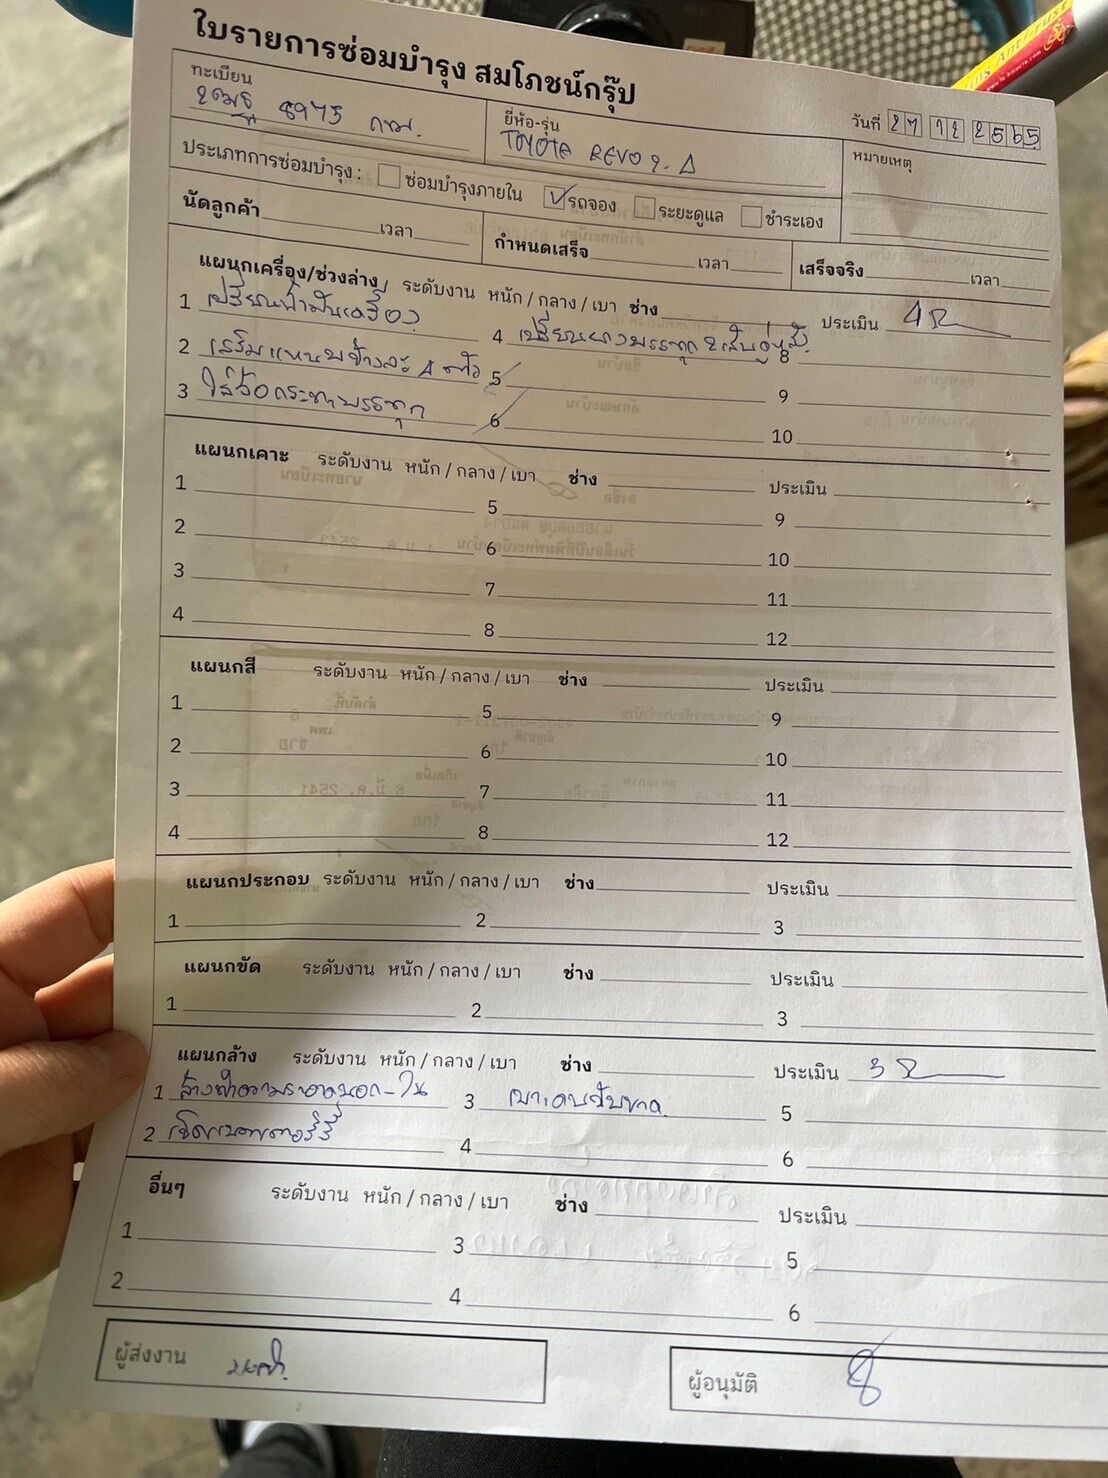 ใบรายการซ่อมบำรุง สมโภชน์กรุ๊ป
ทะเบียน 2ฒฐ 8975 กทม.
ยี่ห้อ-รุ่น TOYOTA REVO
วันที่ 27 12 2565
หมายเหตุ
ประเภทการซ่อมบำรุง : ซ่อมบำรุงภายใน รถจอง ระยะดูแล ชำระเอง
นัดลูกค้า เวลา กำหนดเสร็จ เวลา เสร็จจริง เวลา
แผนกเครื่อง/ช่วงล่าง ระดับงาน หนัก / กลาง / เบา ช่าง ประเมิน
1 เปลี่ยนน้ำมันเครื่อง 4 เปลี่ยนยางบรรทุก 2 เส้นคู่หลัง 8
2 เสริมแหนบข้างละ 5 9
3 ใส่ล้อกระทะบรรทุก 6 10
แผนกเคาะ ระดับงาน หนัก / กลาง / เบา ช่าง ประเมิน
1 5 9
2 6 10
3 7 11
4 8 12
แผนกสี ระดับงาน หนัก / กลาง / เบา ช่าง ประเมิน
1 5 9
2 6 10
3 7 11
4 8 12
แผนกประกอบ ระดับงาน หนัก / กลาง / เบา ช่าง ประเมิน
1 2 3
แผนกขัด ระดับงาน หนัก / กลาง / เบา ช่าง ประเมิน
1 2 3
แผนกล้าง ระดับงาน หนัก / กลาง / เบา ช่าง ประเมิน
1 ล้างทำความสะอาดนอก-ใน 3 5
2 4 6
อื่นๆ ระดับงาน หนัก / กลาง / เบา ช่าง ประเมิน
1 3 5
2 4 6
ผู้ส่งงาน
ผู้อนุมัติ